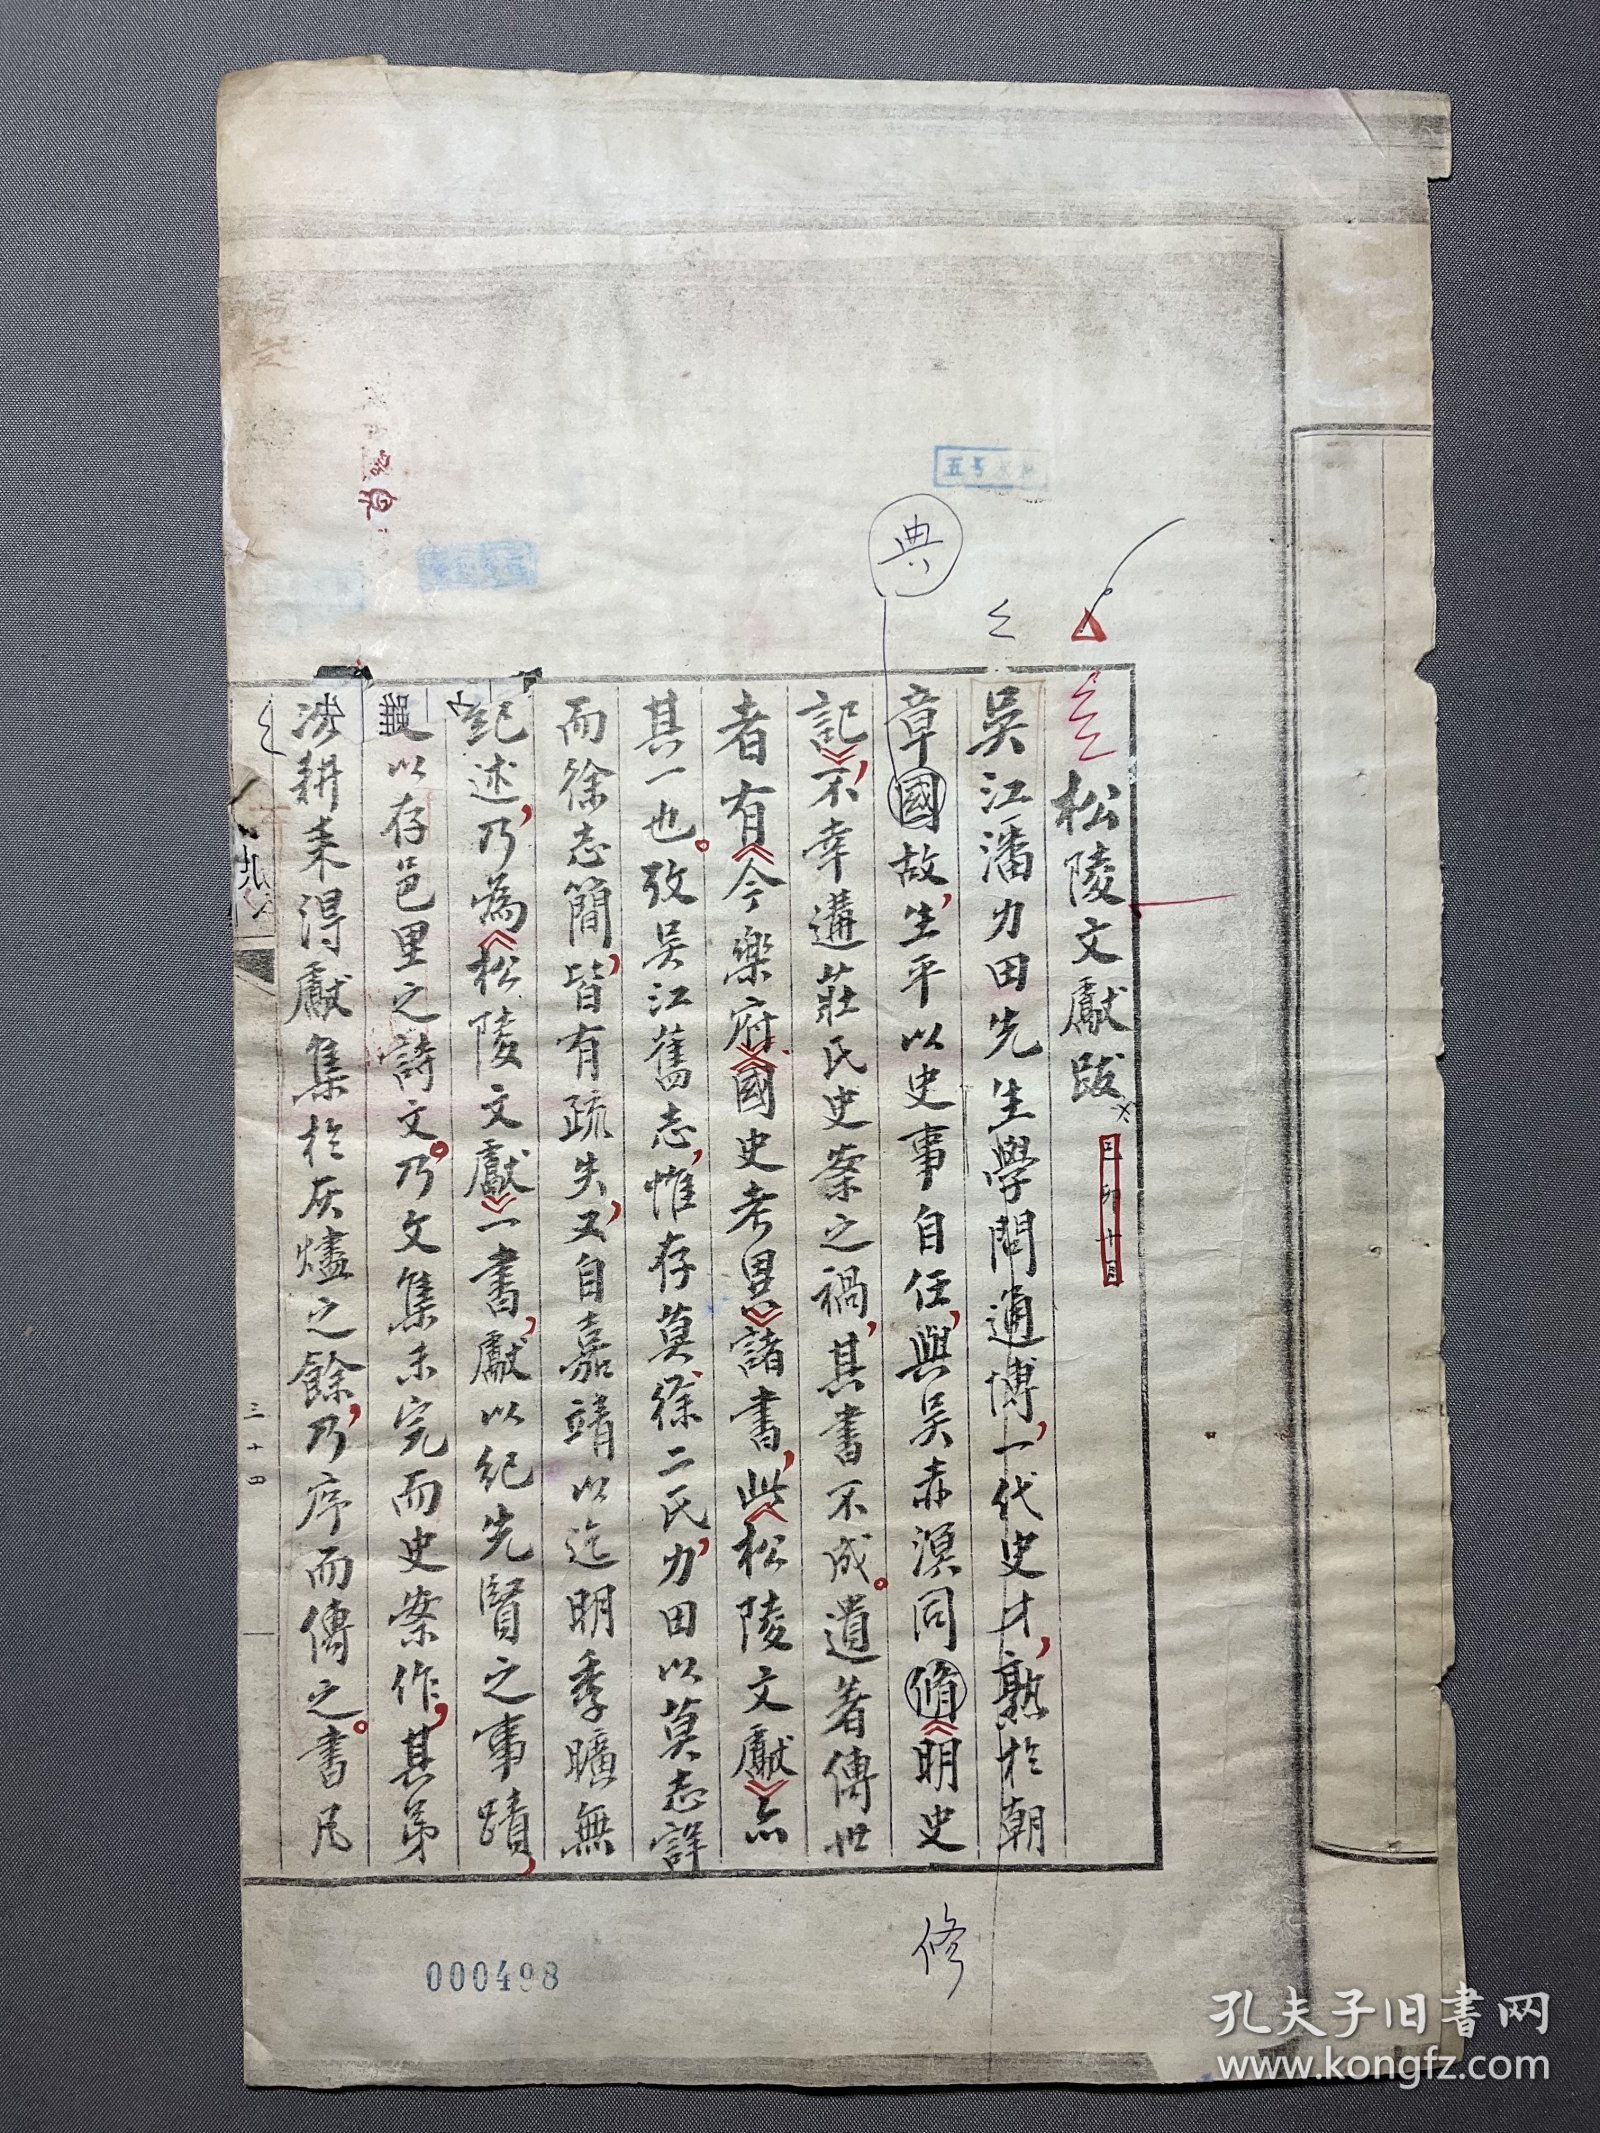 松陵文獻跋 己卯十月
吳江潘力田先生學問通博，一代史才，熟於朝
章國故，生平以史事自任，與吳赤溟同脩《明史
記》，不幸遘莊氏史案之禍，其書不成。遺著傳世
者有《今樂府》《國史考異》諸書，此《松陵文獻》亦
其一也。攷吳江舊志，惟存莫、徐二氏，力田以莫志詳
而徐志簡，皆有疏失，又自嘉靖以迄明季曠無
紀述，乃為《松陵文獻》一書，獻以紀先賢之事蹟，
以存邑里之詩文。乃文集未完而史案作，其弟
耕耒得獻集於灰燼之餘，乃序而傳之。書凡
三十四
典
修
五号
000498
孔夫子旧书网
www.kongfz.com